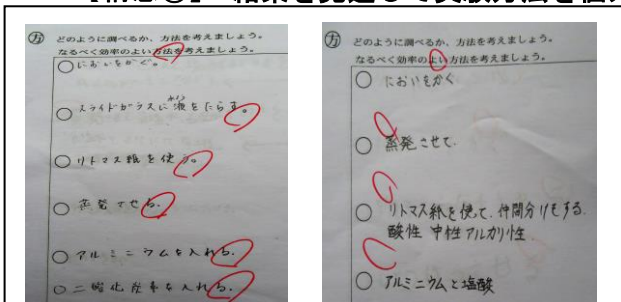 方 どのように調べるか、方法を考えましょう。
なるべく効率のよい方法を考えましょう。
○においをかぐ。
○スライドガラスに液をたらす。
○リトマス紙を使う。
○蒸発させる。
○アルミニウムを入れる。
○二酸化炭素を入れる。
方 どのように調べるか、方法を考えましょう。
なるべく効率のよい方法を考えましょう。
○ においをかぐ
○ 蒸発させて
○ リトマス紙を使って、仲間分けをする。
酸性 中性 アルカリ性
○ アルミニウムと塩酸